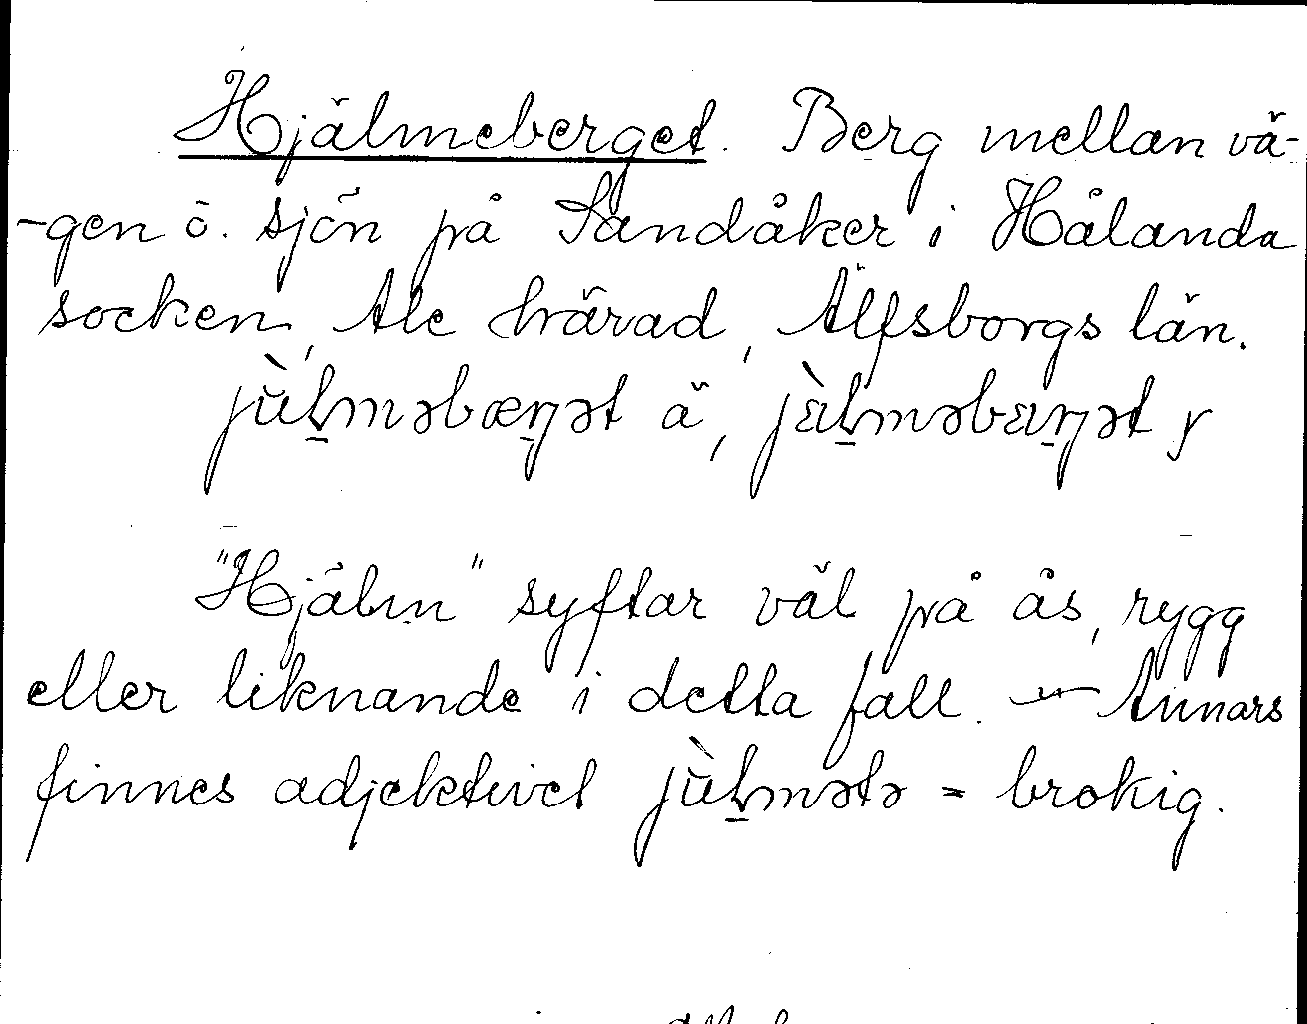 Hjälmeberget. Berg mellan vä-
-gen ö. sjön på Sandåker i Hålanda
socken, Ale härad, Älfsborgs län.
ä, y
"Hjälm" syftar väl på ås, rygg
eller liknande i detta fall. — Annars
finnes adjektivet = brokig.